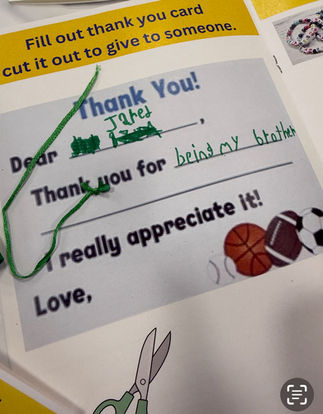 Fill out thank you card
cut it out to give to someone.
Thank You!
Jared
Dear ,
Thank you for being my brother
I really appreciate it!
Love,